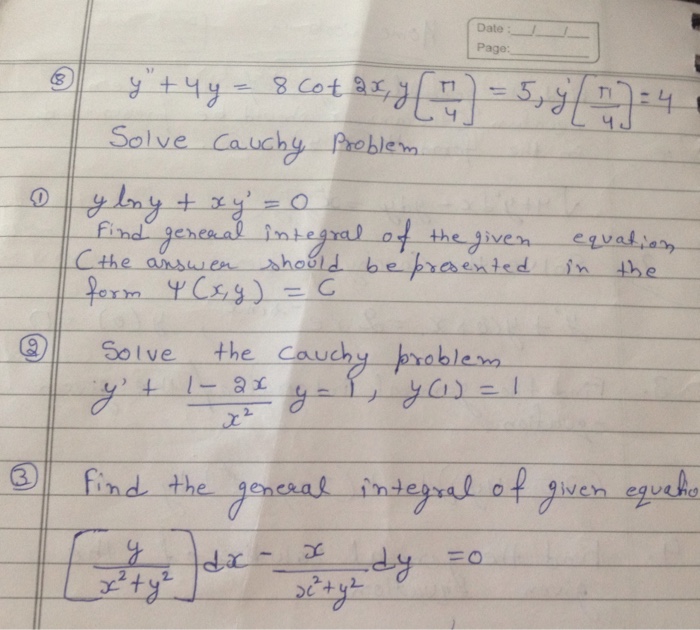 Date: / /
Page:
⑧ y" + 4y = 8 cot 2x, y[π/4] = 5, y'[π/4] = 4
Solve Cauchy Problem.
① y lny + xy' = 0
Find general integral of the given equation
(the answer should be presented in the
form Ψ(x,y) = C
② Solve the Cauchy problem
y' + (1 - 2x)/x² y = 1, y(1) = 1
③ Find the general integral of given equatio
[y/(x²+y²)]dx - x/(x²+y²) dy = 0